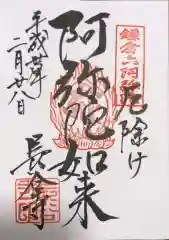 鎌倉六阿弥陀
厄除け
阿弥陀如来
長谷寺
平成卅年
二月廿八日